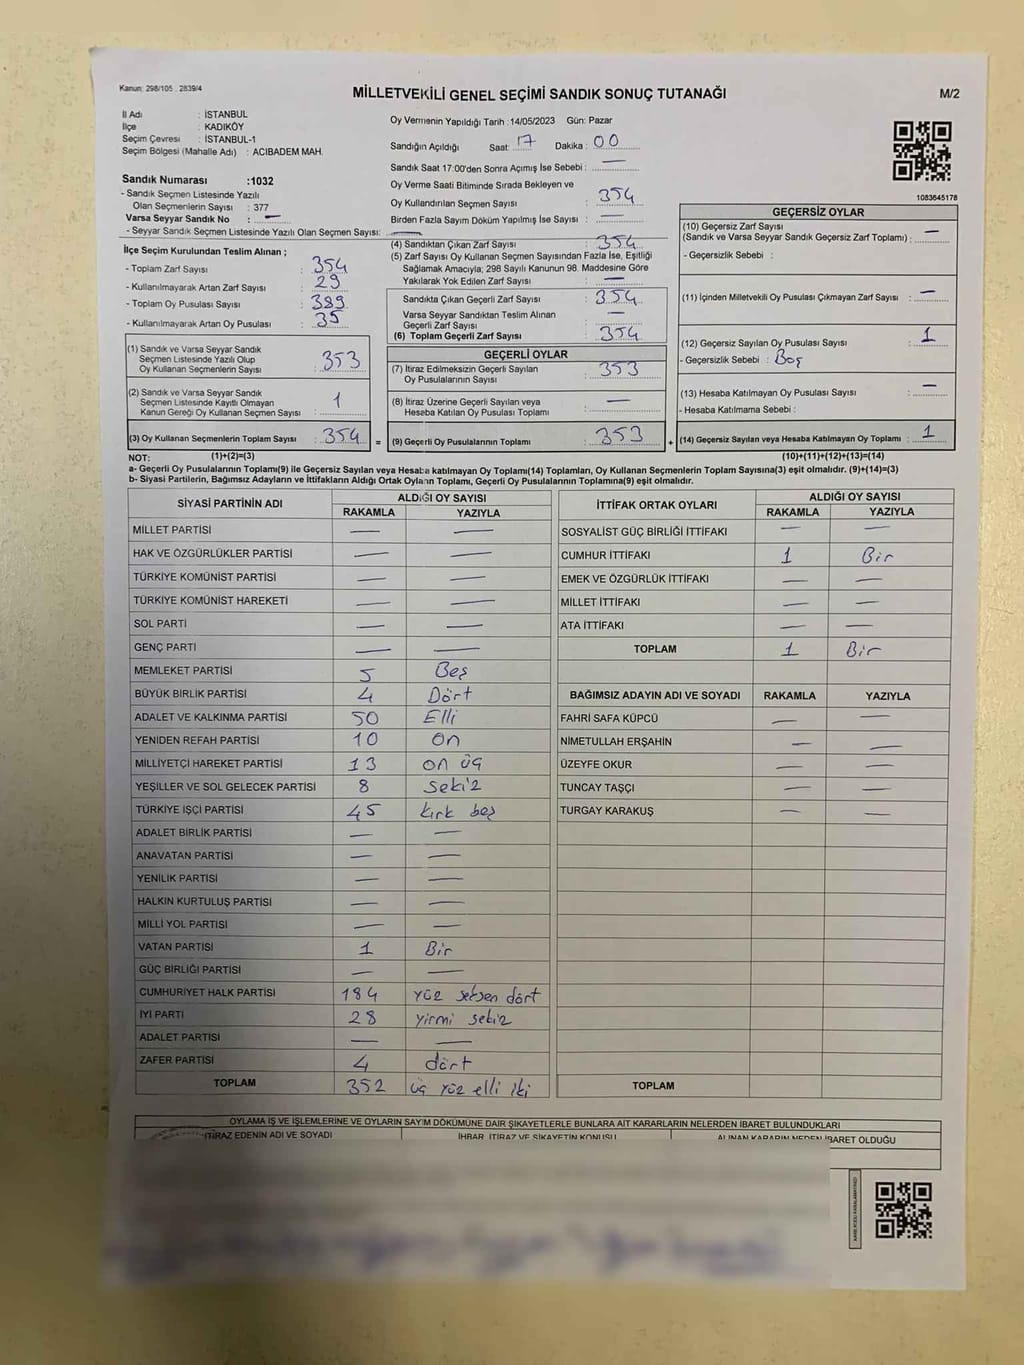 Kanun: 298/105 . 2839/4
MİLLETVEKİLİ GENEL SEÇİMİ SANDIK SONUÇ TUTANAĞI
M/2
İl Adı : İSTANBUL
İlçe : KADIKÖY
Seçim Çevresi : İSTANBUL-1
Seçim Bölgesi (Mahalle Adı) : ACIBADEM MAH.
Sandık Numarası :1032
- Sandık Seçmen Listesinde Yazılı
Olan Seçmenlerin Sayısı : 377
Varsa Seyyar Sandık No : —
- Seyyar Sandık Seçmen Listesinde Yazılı Olan Seçmen Sayısı: —
İlçe Seçim Kurulundan Teslim Alınan ;
- Toplam Zarf Sayısı : 354
- Kullanılmayarak Artan Zarf Sayısı : 29
- Toplam Oy Pusulası Sayısı : 389
- Kullanılmayarak Artan Oy Pusulası : 35
(1) Sandık ve Varsa Seyyar Sandık
Seçmen Listesinde Yazılı Olup
Oy Kullanan Seçmenlerin Sayısı : 353
(2) Sandık ve Varsa Seyyar Sandık
Seçmen Listesinde Kayıtlı Olmayan
Kanun Gereği Oy Kullanan Seçmen Sayısı : 1
(3) Oy Kullanan Seçmenlerin Toplam Sayısı : 354 =
Oy Vermenin Yapıldığı Tarih :14/05/2023 Gün: Pazar
Sandığın Açıldığı Saat: 17 Dakika : 00
Sandık Saat 17:00'den Sonra Açımış İse Sebebi : —
Oy Verme Saati Bitiminde Sırada Bekleyen ve
Oy Kullandırılan Seçmen Sayısı : 354
Birden Fazla Sayım Döküm Yapılmış İse Sayısı : —
(4) Sandıktan Çıkan Zarf Sayısı : 354
(5) Zarf Sayısı Oy Kullanan Seçmen Sayısından Fazla İse, Eşitliği
Sağlamak Amacıyla; 298 Sayılı Kanunun 98. Maddesine Göre
Yakılarak Yok Edilen Zarf Sayısı : —
Sandıkta Çıkan Geçerli Zarf Sayısı : 354
Varsa Seyyar Sandıktan Teslim Alınan
Geçerli Zarf Sayısı : —
(6) Toplam Geçerli Zarf Sayısı : 354
GEÇERLİ OYLAR
(7) İtiraz Edilmeksizin Geçerli Sayılan
Oy Pusulalarının Sayısı : 353
(8) İtiraz Üzerine Geçerli Sayılan veya
Hesaba Katılan Oy Pusulası Toplamı : —
(9) Geçerli Oy Pusulalarının Toplamı : 353 +
1083645178
GEÇERSİZ OYLAR
(10) Geçersiz Zarf Sayısı
(Sandık ve Varsa Seyyar Sandık Geçersiz Zarf Toplamı) : —
- Geçersizlik Sebebi :
(11) İçinden Milletvekili Oy Pusulası Çıkmayan Zarf Sayısı : —
(12) Geçersiz Sayılan Oy Pusulası Sayısı : 1
- Geçersizlik Sebebi : Boş
(13) Hesaba Katılmayan Oy Pusulası Sayısı : —
- Hesaba Katılmama Sebebi :
(14) Geçersiz Sayılan veya Hesaba Katılmayan Oy Toplamı : 1
NOT: (1)+(2)=(3) (10)+(11)+(12)+(13)=(14)
a- Geçerli Oy Pusulalarının Toplamı(9) ile Geçersiz Sayılan veya Hesaba katılmayan Oy Toplamı(14) Toplamları, Oy Kullanan Seçmenlerin Toplam Sayısına(3) eşit olmalıdır. (9)+(14)=(3)
b- Siyasi Partilerin, Bağımsız Adayların ve İttifakların Aldığı Ortak Oyların Toplamı, Geçerli Oy Pusulalarının Toplamına(9) eşit olmalıdır.
SİYASİ PARTİNİN ADI ALDIĞI OY SAYISI
RAKAMLA YAZIYLA
MİLLET PARTİSİ — —
HAK VE ÖZGÜRLÜKLER PARTİSİ — —
TÜRKİYE KOMÜNİST PARTİSİ — —
TÜRKİYE KOMÜNİST HAREKETİ — —
SOL PARTİ — —
GENÇ PARTİ — —
MEMLEKET PARTİSİ 5 Beş
BÜYÜK BİRLİK PARTİSİ 4 Dört
ADALET VE KALKINMA PARTİSİ 50 Elli
YENİDEN REFAH PARTİSİ 10 on
MİLLİYETÇİ HAREKET PARTİSİ 13 on üç
YEŞİLLER VE SOL GELECEK PARTİSİ 8 sekiz
TÜRKİYE İŞÇİ PARTİSİ 45 kırk beş
ADALET BİRLİK PARTİSİ — —
ANAVATAN PARTİSİ — —
YENİLİK PARTİSİ — —
HALKIN KURTULUŞ PARTİSİ — —
MİLLİ YOL PARTİSİ — —
VATAN PARTİSİ 1 Bir
GÜÇ BİRLİĞİ PARTİSİ — —
CUMHURİYET HALK PARTİSİ 184 yüz seksen dört
İYİ PARTİ 28 yirmi sekiz
ADALET PARTİSİ — —
ZAFER PARTİSİ 4 dört
TOPLAM 352 üç yüz elli iki
İTTİFAK ORTAK OYLARI ALDIĞI OY SAYISI
RAKAMLA YAZIYLA
SOSYALİST GÜÇ BİRLİĞİ İTTİFAKI — —
CUMHUR İTTİFAKI 1 Bir
EMEK VE ÖZGÜRLÜK İTTİFAKI — —
MİLLET İTTİFAKI — —
ATA İTTİFAKI — —
TOPLAM 1 Bir
BAĞIMSIZ ADAYIN ADI VE SOYADI RAKAMLA YAZIYLA
FAHRİ SAFA KÜPCÜ — —
NİMETULLAH ERŞAHİN — —
ÜZEYFE OKUR — —
TUNCAY TAŞÇI — —
TURGAY KARAKUŞ — —
TOPLAM
OYLAMA İŞ VE İŞLEMLERİNE VE OYLARIN SAYIM DÖKÜMÜNE DAİR ŞİKAYETLERLE BUNLARA AİT KARARLARIN NELERDEN İBARET BULUNDUKLARI
İTİRAZ EDENİN ADI VE SOYADI İHBAR, İTİRAZ VE ŞİKAYETİN KONUSU ALINAN KARARIN NEDEN İBARET OLDUĞU